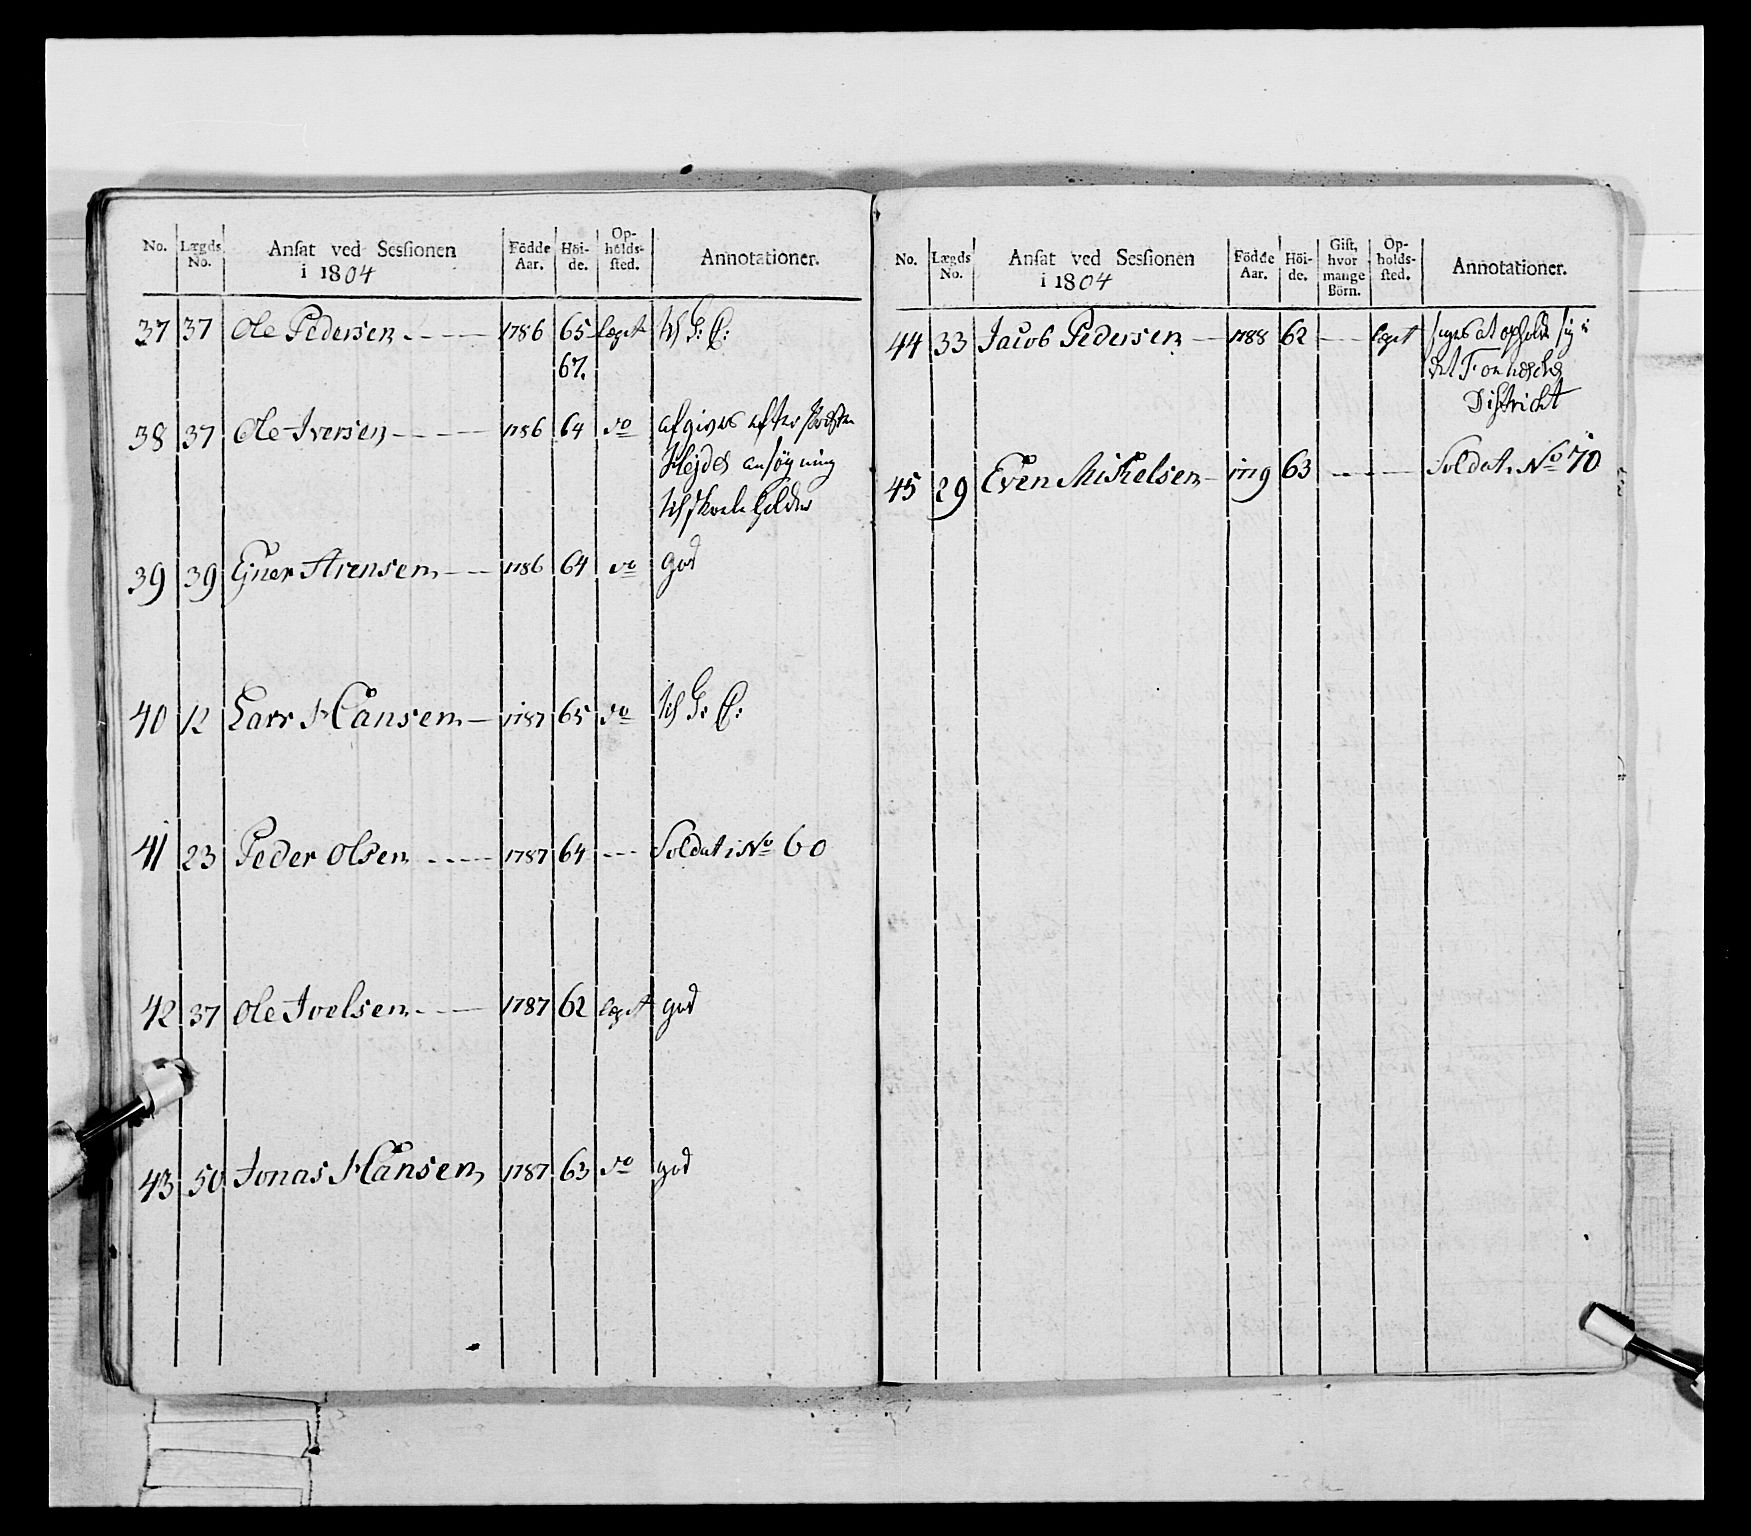 No. Lægds No. Ansat ved Sessionen i 1804 Födde Aar. Höide. Opholdssted. Annotationer.
37 37 Ole Pedersen 1786 65 læget til G: C:
67.
38 37 Ole Iversen 1786 64 do afgives efter Prosten
Hejdes ansøgning
til skoleholder
39 39 Ejner Arensen 1786 64 do god
40 12 Lars Hansen 1787 65 do til G: C:
41 23 Peder Olsen 1787 64 Soldat i No 60
42 37 Ole Joelsen 1787 62 læget god
43 50 Jonas Hansen 1787 63 do god
No. Lægds No. Ansat ved Sessionen i 1804 Födde Aar. Höide. Gift, hvor mange Börn. Opholdssted. Annotationer.
44 33 Jacob Pedersen 1788 62 læget siges at opholde sig i
det
District
45 29 Even Mikkelsen 1779 63 Soldat i No 70